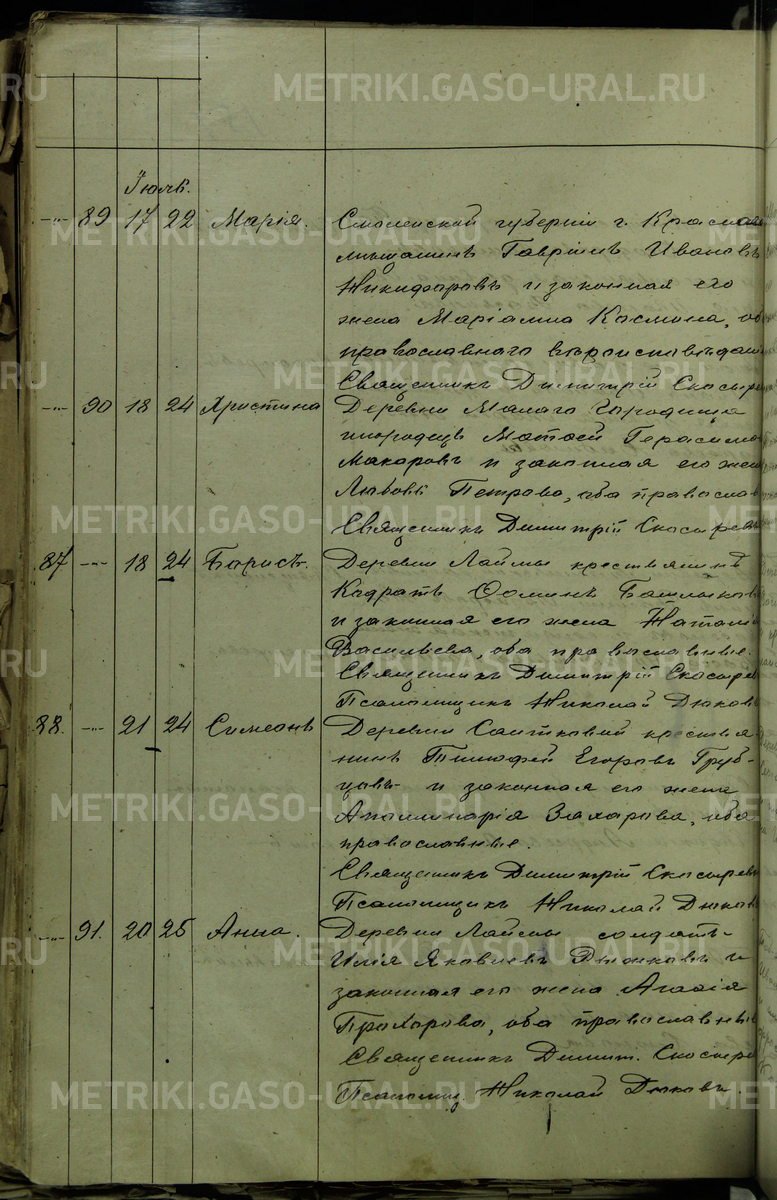 Іюль.
-"- 89 17 22 Марія. Смоленской губерніи г. Красна
мѣщанинъ Гавріилъ Ивановъ
Никифоровъ и законная его
жена Маріамна Космина, об
православнаго вѣроисповѣдан
Священникъ Димитрій Скосыре
-"- 90 18 24 Христина Деревни Малаго Городища
инородецъ Матѳей Герасимо
Макаровъ и законная его жен
Любовь Петрова, оба православ
Священникъ Димитрій Скосырев
87 -"- 18 24 Борисъ. Деревни Лаймы крестьянинъ
Кодратъ Ѳоминъ Башлыков
и законная его жена Наталі
Васильева, оба православные.
Священникъ Димитрій Скосыре
Псаломщикъ Николай Дюковъ
88. -"- 21 24 Симеонъ Деревни Саитковой крестья
нинъ Тимофей Егоровъ Груб-
цовъ и законная его жена
Аполлинарія Захарова, оба
православные.
Священникъ Димитрій Скосырев
Псаломщикъ Николай Дюков
-"- 91. 20 25 Анна. Деревни Лаймы солдатъ
Илія Яковлевъ и
законная его жена Агаѳія
Прохорова, оба православны
Священникъ Димит. Скосыре
Псаломщ. Николай Дюковъ.
METRIKI.GASO-URAL.RU